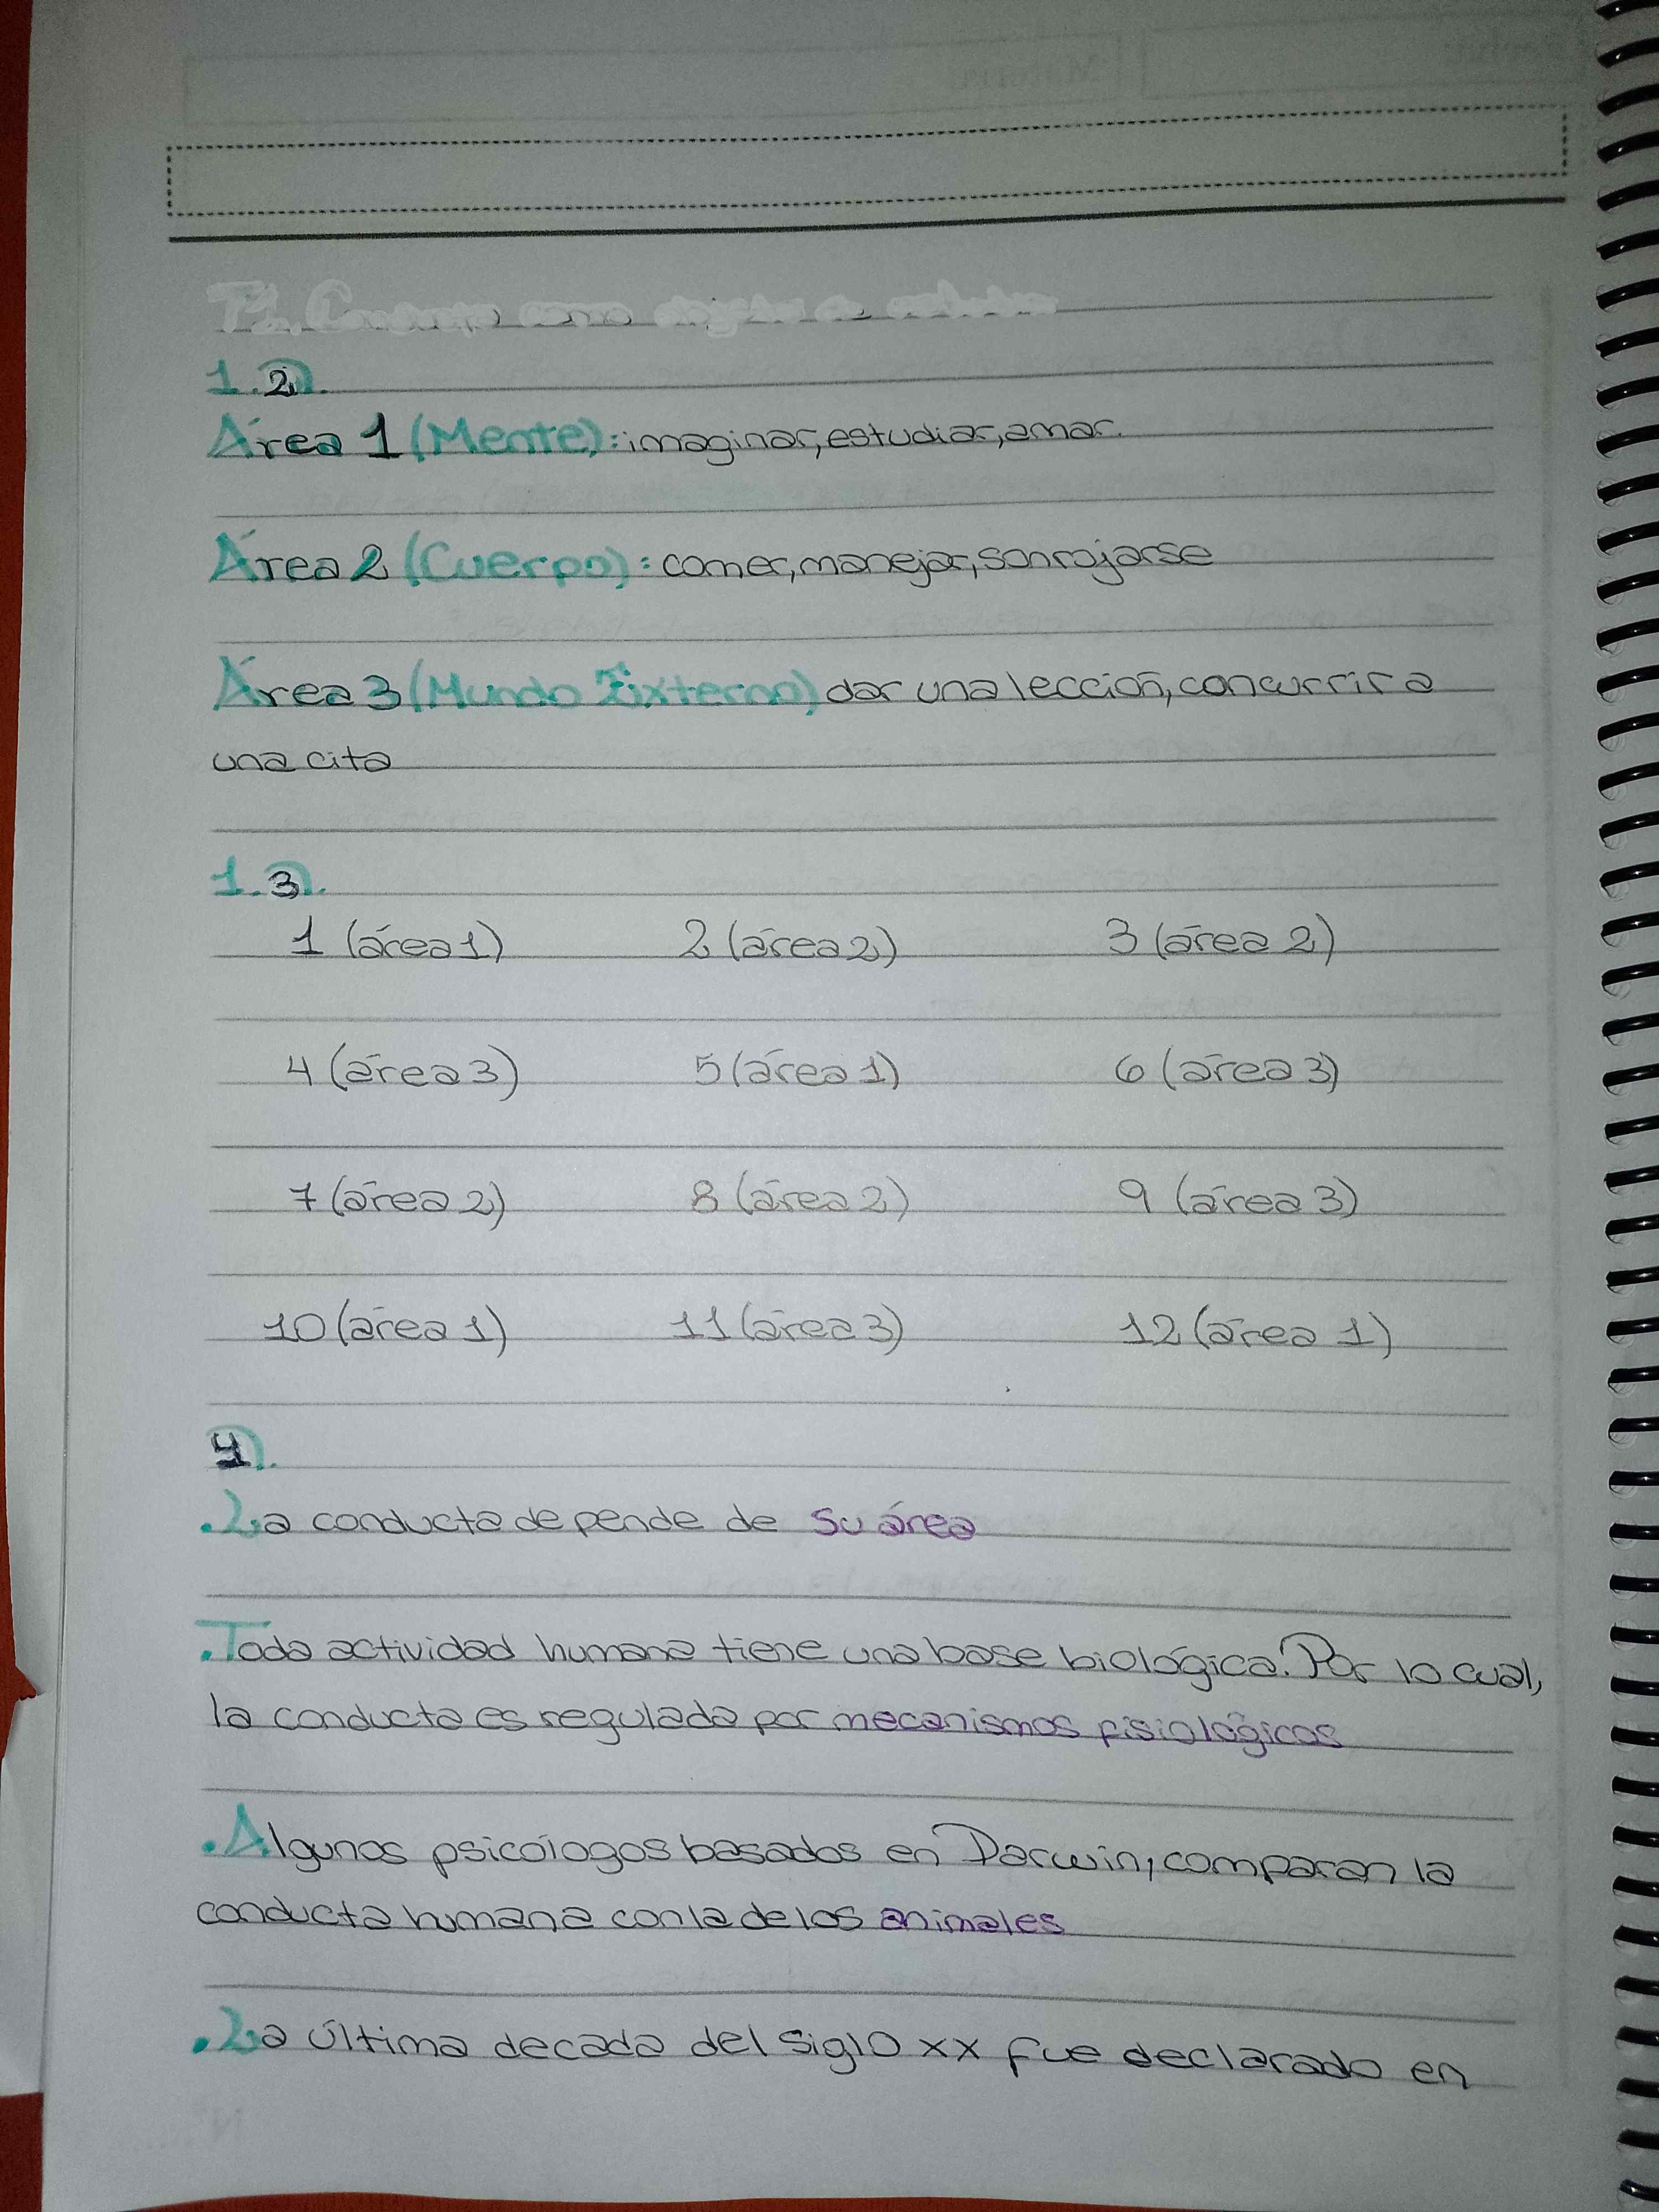 1.2).
Área 1 (Mente): imaginar, estudiar, amar.
Área 2 (Cuerpo): comer, manejar, sonrojarse
Área 3 (Mundo Externo) dar una lección, concurrir a
una cita
1.3).
1 (área 1) 2 (área 2) 3 (área 2)
4 (área 3) 5 (área 1) 6 (área 3)
7 (área 2) 8 (área 2) 9 (área 3)
10 (área 1) 11 (área 3) 12 (área 1)
4).
.La conducta depende de su área
.Toda actividad humana tiene una base biológica. Por lo cual,
la conducta es regulada por mecanismos fisiológicos
.Algunos psicólogos basados en Darwin, comparan la
conducta humana con la de los animales
.La última decada del siglo xx fue declarado en